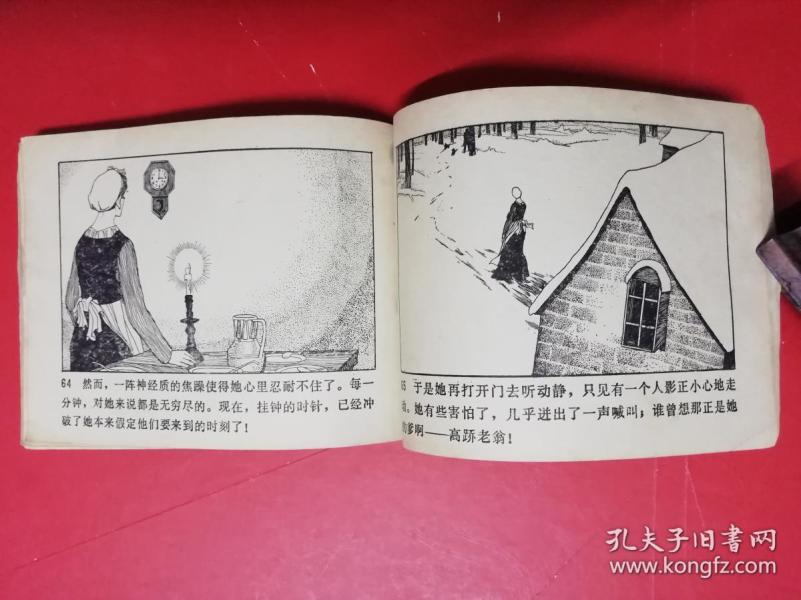 64 然而，一阵神经质的焦躁使得她心里忍耐不住了。每一
分钟，对她来说都是无穷尽的。现在，挂钟的时针，已经冲
破了她本来假定他们要来到的时刻了！
5 于是她再打开门去听动静，只见有一个人影正小心地走
动。她有些害怕了，几乎迸出了一声喊叫；谁曾想那正是她
爹啊——高跷老翁！
孔夫子旧书网
www.kongfz.com